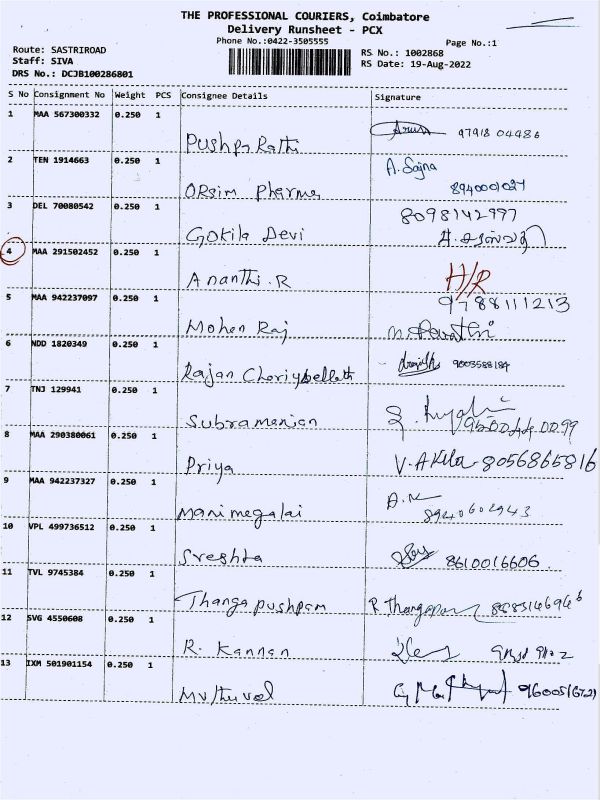 THE PROFESSIONAL COURIERS, Coimbatore
Delivery Runsheet - PCX
Phone No.:0422-3505555
Page No.:1
Route: SASTRIROAD
RS No.: 1002868
Staff: SIVA
RS Date: 19-Aug-2022
DRS No.: DCJB100286801
S No Consignment No Weight PCS Consignee Details Signature
1 MAA 567300332 0.250 1
Pushpa Rathi 97918 04486
2 TEN 1914663 0.250 1 A. Sajna
ORSim Pharma 8940001027
3 DEL 70080542 0.250 1 8098142997
Gokila Devi
4 MAA 291502452 0.250 1 H/R
Ananthi.R
5 MAA 942237097 0.250 1 9788111213
Mohan Raj
6 NDD 1820349 0.250 1
Rajan 9003588184
7 TNJ 129941 0.250 1
Subramanian
8 MAA 290380061 0.250 1
Priya V. Akila 8056865816
9 MAA 942237327 0.250 1
Manimegalai 8940602943
10 VPL 499736512 0.250 1
Sreshta 8610016606
11 TVL 9745384 0.250 1
Thangapushpam
12 SVG 4550608 0.250 1
R. Kannan
13 IXM 501901154 0.250 1
Muthuvel